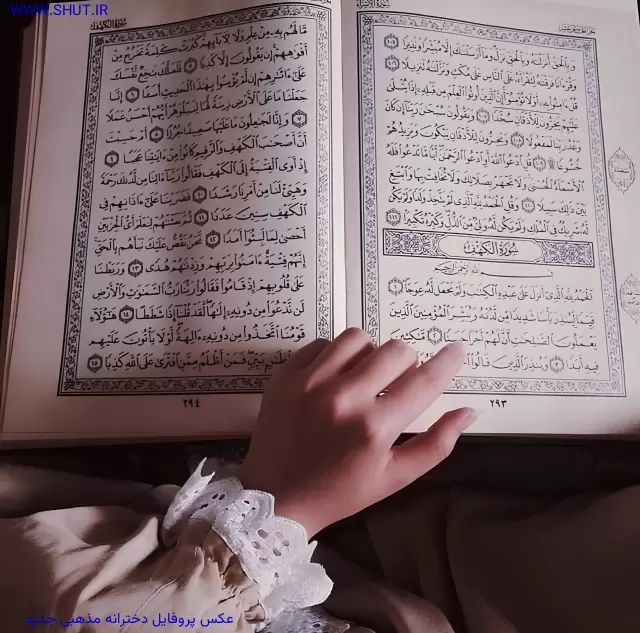 WWW.SHUT.IR
سُورَةُ الإِسْرَاءِ
وَبِالْحَقِّ أَنزَلْنَاهُ وَبِالْحَقِّ نَزَلَ وَمَا أَرْسَلْنَاكَ إِلَّا مُبَشِّرًا وَنَذِيرًا ١٠٥
وَقُرْءَانًا فَرَقْنَاهُ لِتَقْرَأَهُ عَلَى النَّاسِ عَلَى مُكْثٍ وَنَزَّلْنَاهُ تَنزِيلًا ١٠٦
قُلْ ءَامِنُوا بِهِ أَوْ لَا تُؤْمِنُوا إِنَّ الَّذِينَ أُوتُوا الْعِلْمَ مِن قَبْلِهِ إِذَا يُتْلَى
عَلَيْهِمْ يَخِرُّونَ لِلْأَذْقَانِ سُجَّدًا ١٠٧ وَيَقُولُونَ سُبْحَانَ رَبِّنَا إِن كَانَ
وَعْدُ رَبِّنَا لَمَفْعُولًا ١٠٨ وَيَخِرُّونَ لِلْأَذْقَانِ يَبْكُونَ وَيَزِيدُهُمْ
خُشُوعًا ١٠٩ قُلِ ادْعُوا اللَّهَ أَوِ ادْعُوا الرَّحْمَنَ أَيًّا مَّا تَدْعُوا فَلَهُ
الْأَسْمَاءُ الْحُسْنَى وَلَا تَجْهَرْ بِصَلَاتِكَ وَلَا تُخَافِتْ بِهَا وَابْتَغِ
بَيْنَ ذَلِكَ سَبِيلًا ١١٠ وَقُلِ الْحَمْدُ لِلَّهِ الَّذِي لَمْ يَتَّخِذْ وَلَدًا وَلَمْ يَكُن
لَّهُ شَرِيكٌ فِي الْمُلْكِ وَلَمْ يَكُن لَّهُ وَلِيٌّ مِّنَ الذُّلِّ وَكَبِّرْهُ تَكْبِيرًا ١١١
سُورَةُ الْكَهْفِ
بِسْمِ اللَّهِ الرَّحْمَنِ الرَّحِيمِ
الْحَمْدُ لِلَّهِ الَّذِي أَنزَلَ عَلَى عَبْدِهِ الْكِتَابَ وَلَمْ يَجْعَل لَّهُ عِوَجًا ١
قَيِّمًا لِّيُنذِرَ بَأْسًا شَدِيدًا مِّن لَّدُنْهُ وَيُبَشِّرَ الْمُؤْمِنِينَ الَّذِينَ
يَعْمَلُونَ الصَّالِحَاتِ أَنَّ لَهُمْ أَجْرًا حَسَنًا ٢ مَّاكِثِينَ
فِيهِ أَبَدًا ٣ وَيُنذِرَ الَّذِينَ قَالُوا
٢٩٣
سُورَةُ الْكَهْفِ
مَّا لَهُم بِهِ مِنْ عِلْمٍ وَلَا لِآبَائِهِمْ كَبُرَتْ كَلِمَةً تَخْرُجُ مِنْ
أَفْوَاهِهِمْ إِن يَقُولُونَ إِلَّا كَذِبًا ٥ فَلَعَلَّكَ بَاخِعٌ نَّفْسَكَ
عَلَى ءَاثَارِهِمْ إِن لَّمْ يُؤْمِنُوا بِهَذَا الْحَدِيثِ أَسَفًا ٦ إِنَّا
جَعَلْنَا مَا عَلَى الْأَرْضِ زِينَةً لَّهَا لِنَبْلُوَهُمْ أَيُّهُمْ أَحْسَنُ عَمَلًا
٧ وَإِنَّا لَجَاعِلُونَ مَا عَلَيْهَا صَعِيدًا جُرُزًا ٨ أَمْ حَسِبْتَ
أَنَّ أَصْحَابَ الْكَهْفِ وَالرَّقِيمِ كَانُوا مِنْ ءَايَاتِنَا عَجَبًا ٩
إِذْ أَوَى الْفِتْيَةُ إِلَى الْكَهْفِ فَقَالُوا رَبَّنَا ءَاتِنَا مِن لَّدُنكَ رَحْمَةً
وَهَيِّئْ لَنَا مِنْ أَمْرِنَا رَشَدًا ١٠ فَضَرَبْنَا عَلَى ءَاذَانِهِمْ فِي
الْكَهْفِ سِنِينَ عَدَدًا ١١ ثُمَّ بَعَثْنَاهُمْ لِنَعْلَمَ أَيُّ الْحِزْبَيْنِ
أَحْصَى لِمَا لَبِثُوا أَمَدًا ١٢ نَّحْنُ نَقُصُّ عَلَيْكَ نَبَأَهُم بِالْحَقِّ
إِنَّهُمْ فِتْيَةٌ ءَامَنُوا بِرَبِّهِمْ وَزِدْنَاهُمْ هُدًى ١٣ وَرَبَطْنَا
عَلَى قُلُوبِهِمْ إِذْ قَامُوا فَقَالُوا رَبُّنَا رَبُّ السَّمَاوَاتِ وَالْأَرْضِ
لَن نَّدْعُوَا مِن دُونِهِ إِلَهًا لَّقَدْ قُلْنَا إِذًا شَطَطًا ١٤ هَؤُلَاءِ
قَوْمُنَا اتَّخَذُوا مِن دُونِهِ ءَالِهَةً لَّوْلَا يَأْتُونَ عَلَيْهِم
بِسُلْطَانٍ بَيِّنٍ فَمَنْ أَظْلَمُ مِمَّنِ افْتَرَى عَلَى اللَّهِ كَذِبًا ١٥
٢٩٤
عکس پروفایل دخترانه مذهبی جدید